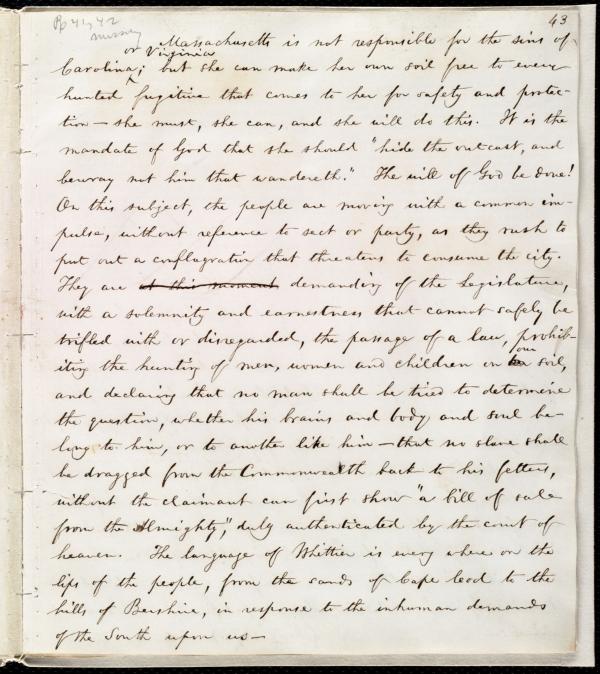 Pp 41, 42
missing
43
Massachusetts is not responsible for the sins of
or Virginia
Carolina; but she can make her own soil free to every
hunted fugitive that comes to her for safety and protec-
tion — she must, she can, and she will do this. It is the
mandate of God that she should "hide the outcast, and
bewray not him that wandereth." The will of God be done!
On this subject, the people are moving with a common im-
pulse, without reference to sect or party, as they rush to
put out a conflagration that threatens to consume the city.
They are at this moment demanding of the Legislature,
with a solemnity and earnestness that cannot safely be
trifled with or disregarded, the passage of a law, prohib-
our
iting the hunting of men, women and children on her soil,
and declaring that no man shall be tried to determine
the question, whether his brains and body and soul be-
long to him, or to another like him — that no slave shall
be dragged from the Commonwealth back to his fetters,
without the claimant can first show "a bill of sale
from the Almighty," duly authenticated by the court of
heaven. The language of Whittier is every where on the
lips of the people, from the sands of Cape Cod to the
hills of Berkshire, in response to the inhuman demands
of the South upon us —